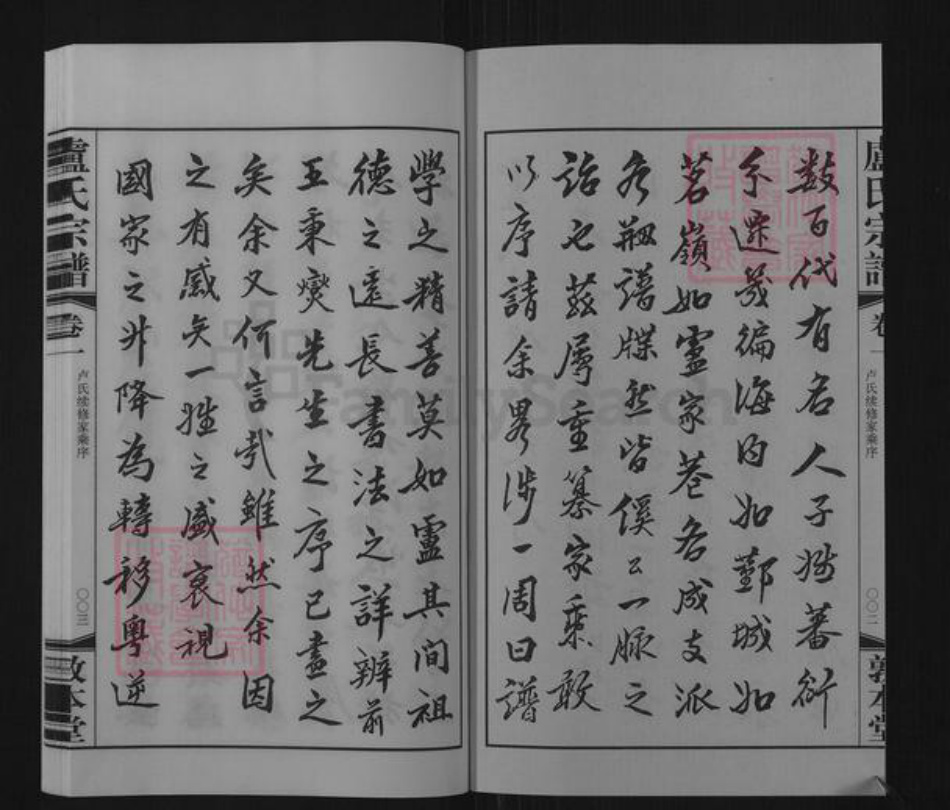 盧氏宗譜
卷一
卢氏续修家乘序
〇〇二
敦本堂
数百代有名人子姓蕃衍
不遐幾徧海内如鄞城如
茗嶺如盧家巷各成支派
各刱譜牒然皆傒公一脉之
詒也茲届重纂家乘敢
以序請余畧涉一周曰譜
學之精善莫如盧其间祖
德之遠長書法之詳辨前
王秉燮先生之序已盡之
矣余又何言哉雖然余因
之有感矣一姓之盛衰視
國家之升降為轉移粤逆
盧氏宗譜
卷一
卢氏续修家乘序
〇〇三
敦本堂
FamilySearch